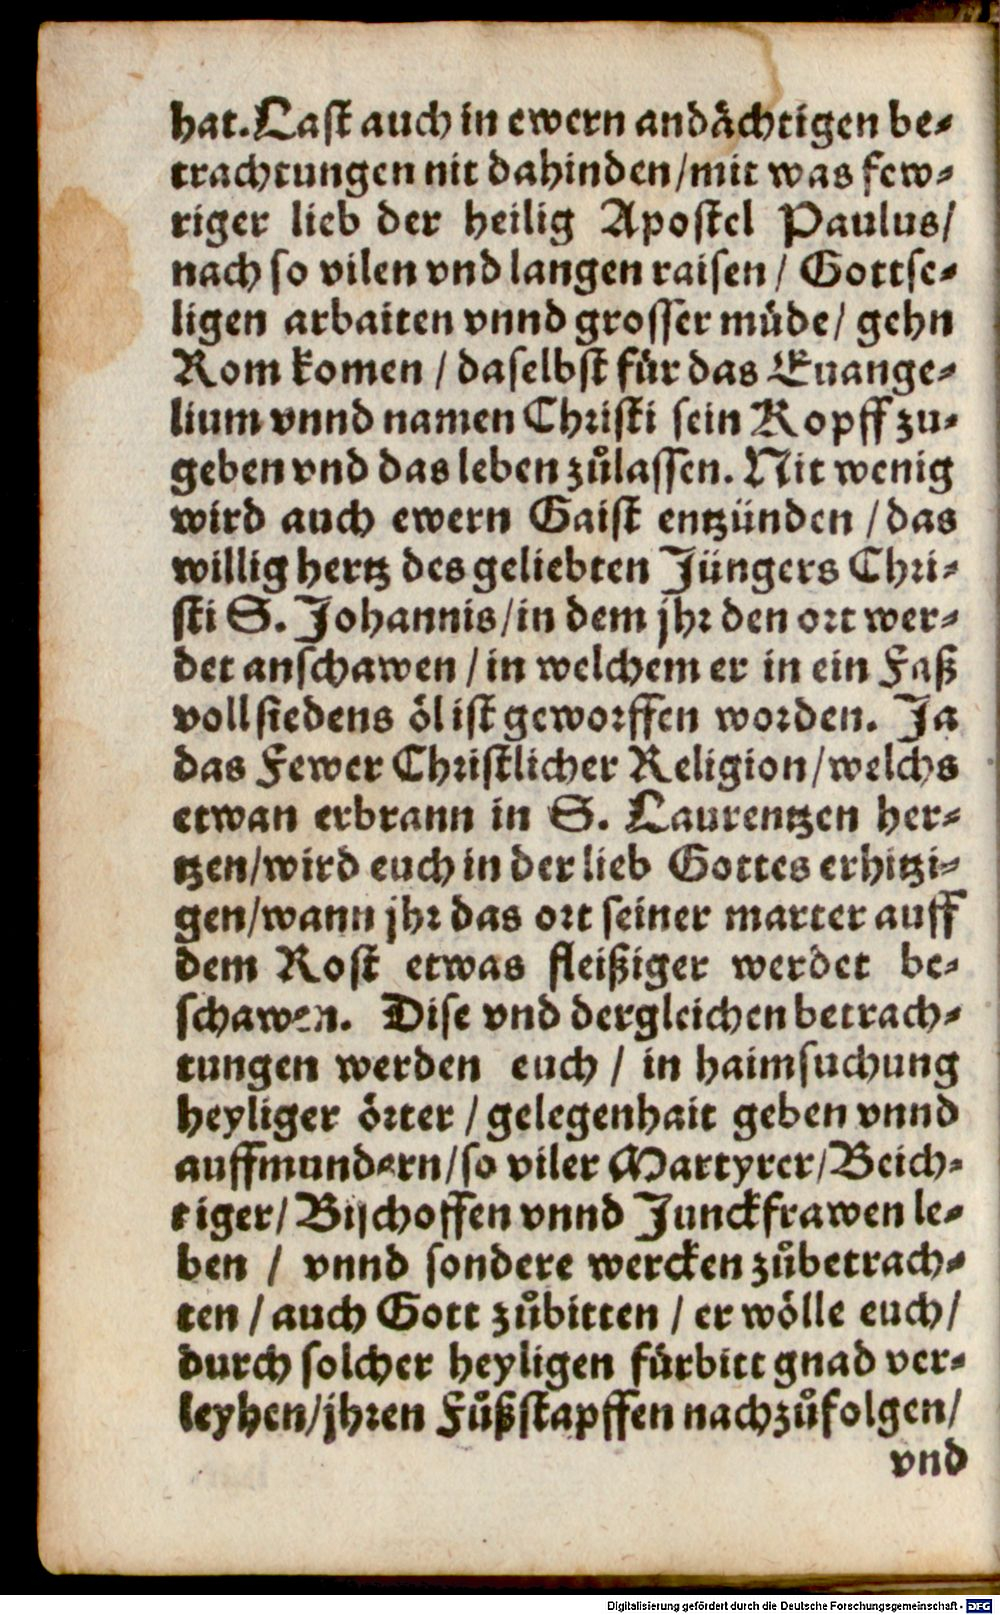 hat. Last auch in ewern andächtigen be-
trachtungen nit dahinden / mit was few-
riger lieb der heilig Apostel Paulus/
nach so vilen vnd langen raisen / Gottse-
ligen arbaiten vnnd grosser müde / gehn
Rom komen / daselbst für das Euange-
lium vnnd namen Christi sein Kopff zu-
geben vnd das leben zůlassen. Nit wenig
wird auch ewern Gaist entzünden / das
willig hertz des geliebten Jüngers Chri-
sti S. Johannis / in dem jhr den ort wer-
det anschawen / in welchem er in ein Faß
voll siedens öl ist geworffen worden. Ja
das Fewer Christlicher Religion / welchs
etwan erbrann in S. Laurentzen her-
tzen / wird euch in der lieb Gottes erhitzi-
gen / wann jhr das ort seiner marter auff
dem Rost etwas fleißiger werdet be-
schawen. Dise vnd dergleichen betrach-
tungen werden euch / in haimsuchung
heyliger örter / gelegenhait geben vnnd
auffmundern / so viler Martyrer / Beich-
tiger / Bischoffen vnnd Junckfrawen le-
ben / vnnd sondere wercken zůbetrach-
ten / auch Gott zůbitten / er wölle euch /
durch solcher heyligen fürbitt gnad ver-
leyhen / jhren Fůßstapffen nachzůfolgen /
vnd
Digitalisierung gefördert durch die Deutsche Forschungsgemeinschaft - DFG